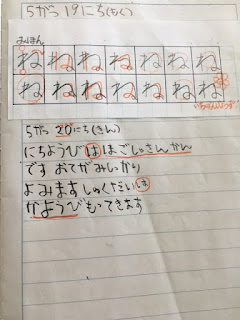 5がつ19にち(もく)
みほん
ねねねねねねね
ねねねねねねね
5がつ20にち(きん)
にちようびははごしゅさんかん
です おてがみしっかり
よみます しゅくだいは
かようびもってきます